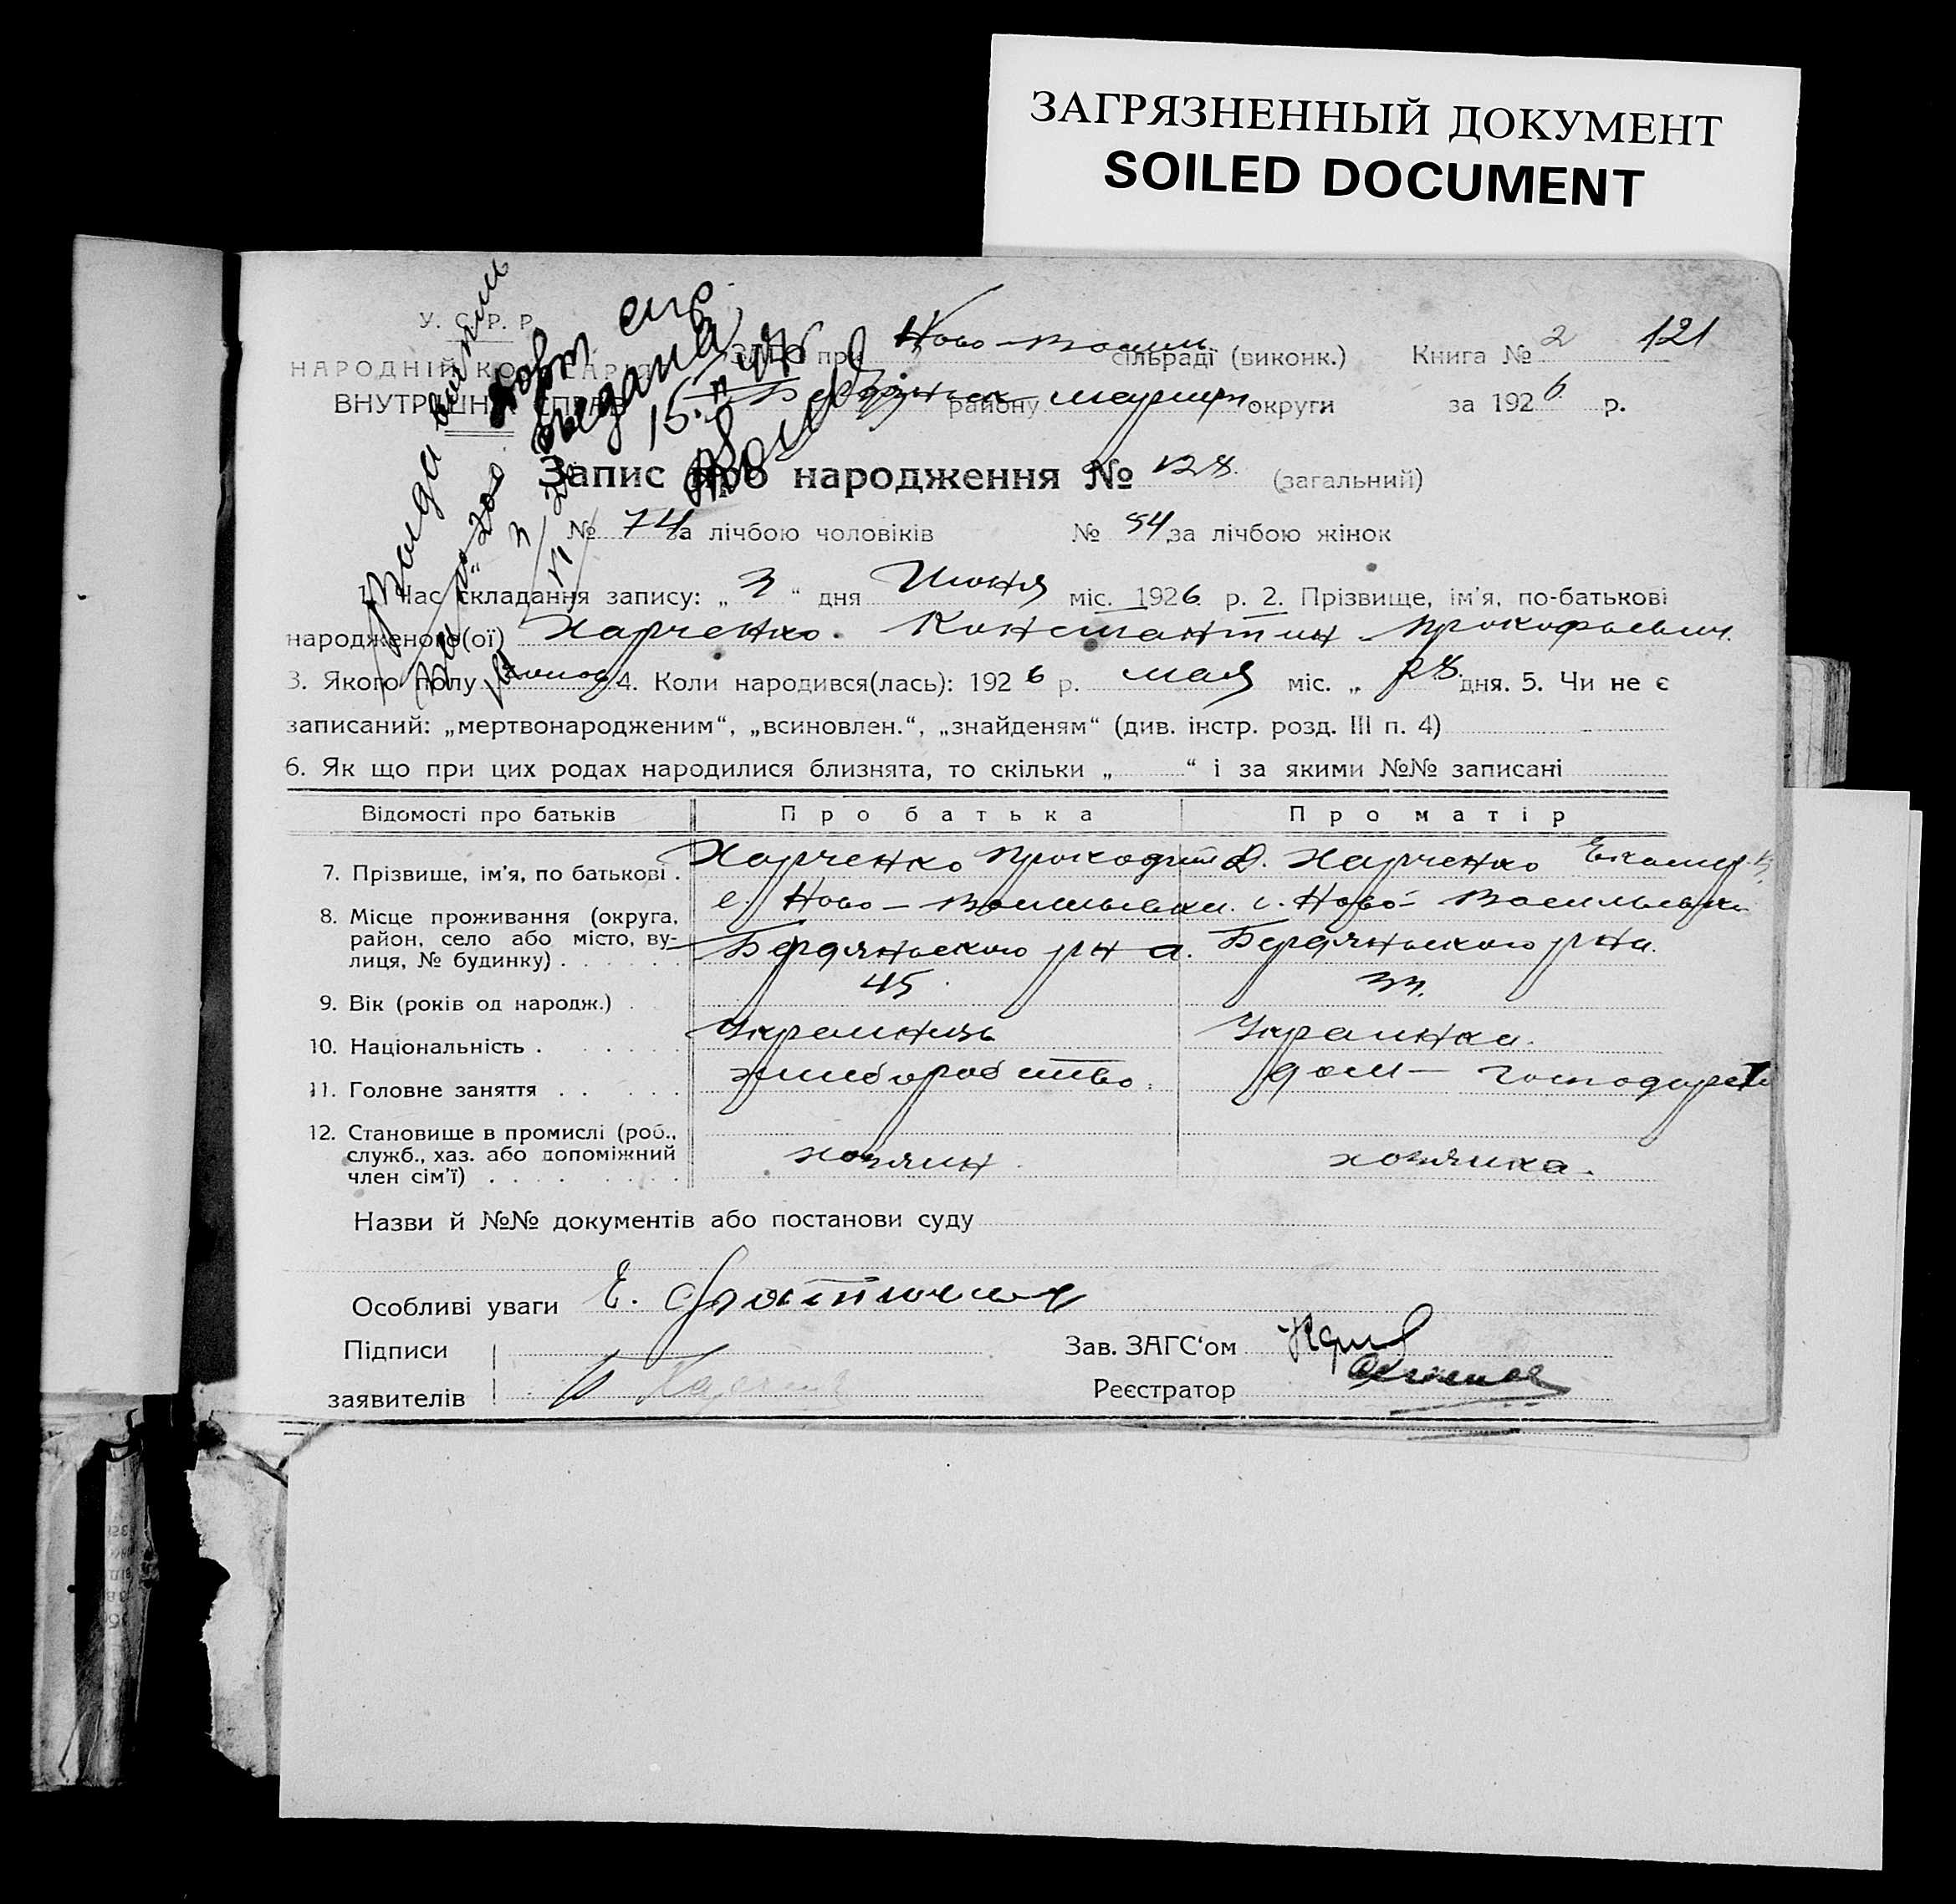 ЗАГРЯЗНЕННЫЙ ДОКУМЕНТ
SOILED DOCUMENT
У. С. Р. Р.
НАРОДНІЙ
ВНУТРІШНІ
повт
выдана
15.
при Ново-Васил сільраді (виконк.) Книга № 2 121
району округи за 1926 р.
Запис про народження № 128 (загальний)
№ 74 за лічбою чоловіків № 54 за лічбою жінок
1. Час складання запису: „ 3 “ дня Июня міс. 1926 р. 2. Прізвище, ім'я, по-батькові
народженого(ої) Харченко. Константин Прокофьевич.
3. Якого полу 4. Коли народився(лась): 1926 р. мая міс. „ 28 дня. 5. Чи не є
записаний: „мертвонародженим“, „всиновлен.“, „знайденям“ (див. інстр. розд. III п. 4)
6. Як що при цих родах народилися близнята, то скільки „ “ і за якими №№ записані
Відомості про батьків Про батька Про матір
7. Прізвище, ім'я, по батькові . Харченко Харченко
8. Місце проживання (округа, с. Ново-Васильевки. с. Ново-Васильевки
район, село або місто, ву- Бердянського р-на. Бердянського р-на.
лиця, № будинку) . . . . . .
9. Вік (років од народж.) . 45 33.
10. Національність . . . . . Украинць Украинка.
11. Головне заняття . . . . . хлиборобство. дом-господарст
12. Становище в промислі (роб.,
служб., хаз. або допоміжний хозяин хозяика.
член сім'ї) . . . . . . . .
Назви й №№ документів або постанови суду
Особливі уваги Е.
Підписи Зав. ЗАГС'ом
заявителів Реєстратор